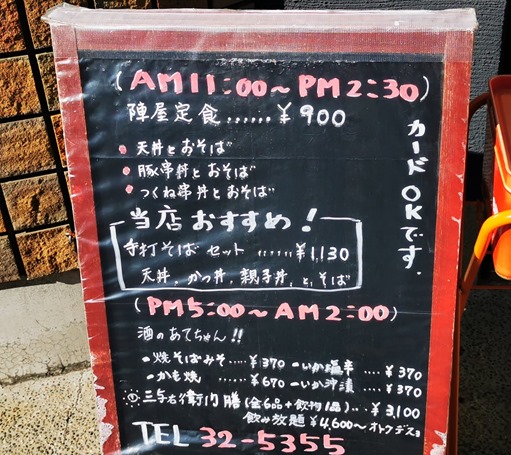 (AM11:00~PM2:30)
陣屋定食......¥900
カードOKです.
• 天丼とおそば
• 豚串丼とおそば
• つくね串丼とおそば
当店おすすめ!
手打そばセット ......¥1,130
天丼, かつ丼, 親子丼, と, そば
(PM5:00~AM2:00)
酒のあてちゃん!!
-焼そばみそ.....¥370 -いか塩辛 ....¥370
-かも焼 .....¥670 -いか沖漬 ....¥370
三与右衛門 膳(全6品+飲物1品)..¥3,100
飲み放題 ¥4,600~オトクデスョ
TEL 32-5355